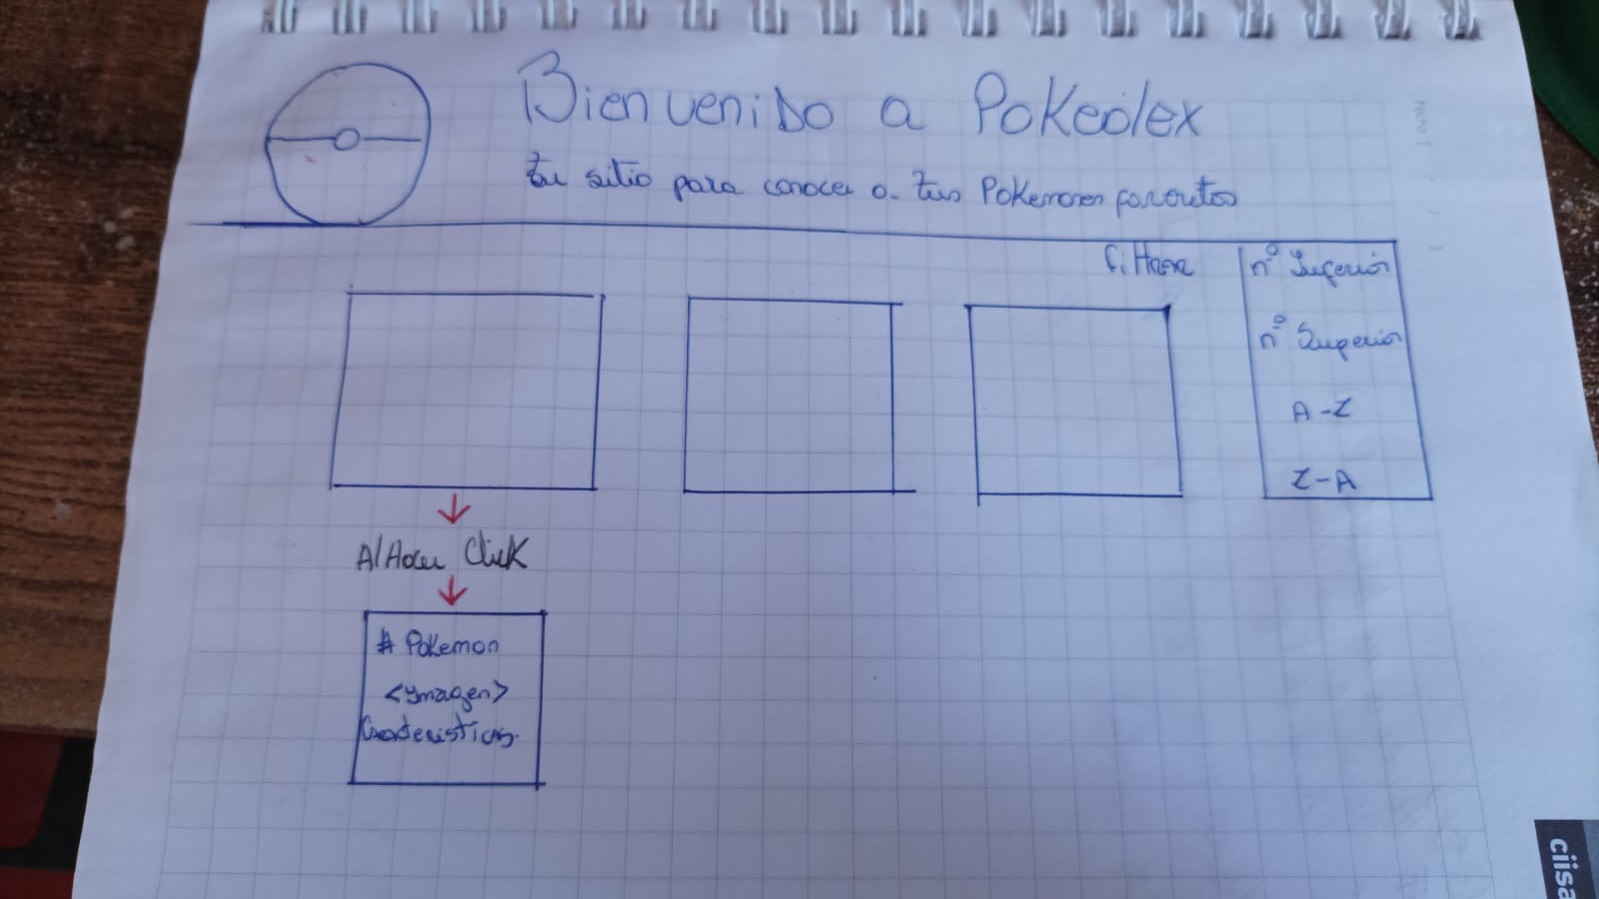 Bienvenido a Pokedex
tu sitio para conocer a tus Pokemones favoritos
filtrar
nº Inferior
nº Superior
A-Z
Z-A
Al Hacer Click
# Pokemon
<Ymagen>
Caracteristicas
ciisa